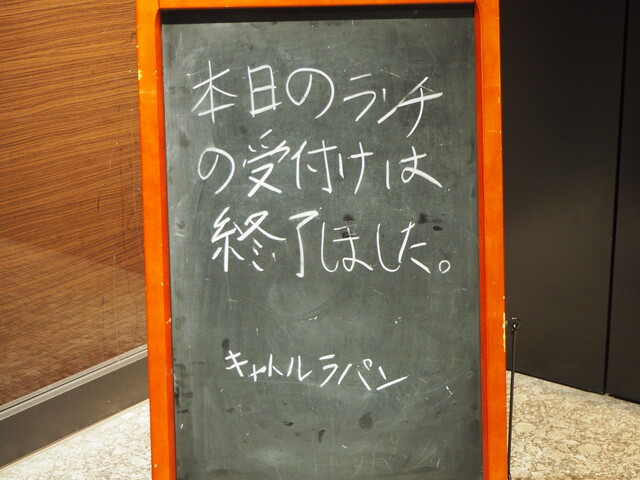 本日のランチ
の受付けは
終了しました。
キャトルラパン